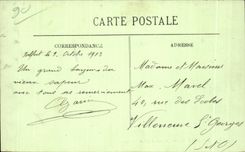 CARTE POSTALE
CORRESPONDANCE
ADRESSE
le 2 Octobre 1913
Un grand bonjour du
vieux sapeur
avec tous ses remerciements
Madame et Monsieur
Max Marel
40, rue des Ecoles
Villeneuve St Georges
(S&O)